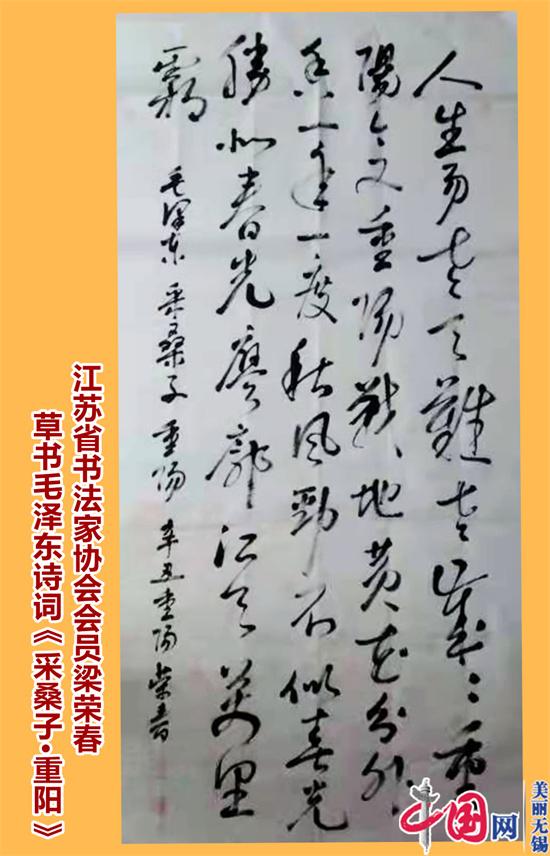 人生易老天難老歲〻重
陽今又重陽戰地黄花分外
香一年一度秋風勁不似春光
勝似春光寥廓江天萬里
霜
毛泽东采桑子重陽 辛丑重陽荣春
江苏省书法家协会会员梁荣春
草书毛泽东诗词《采桑子·重阳》
中国网
美丽无锡